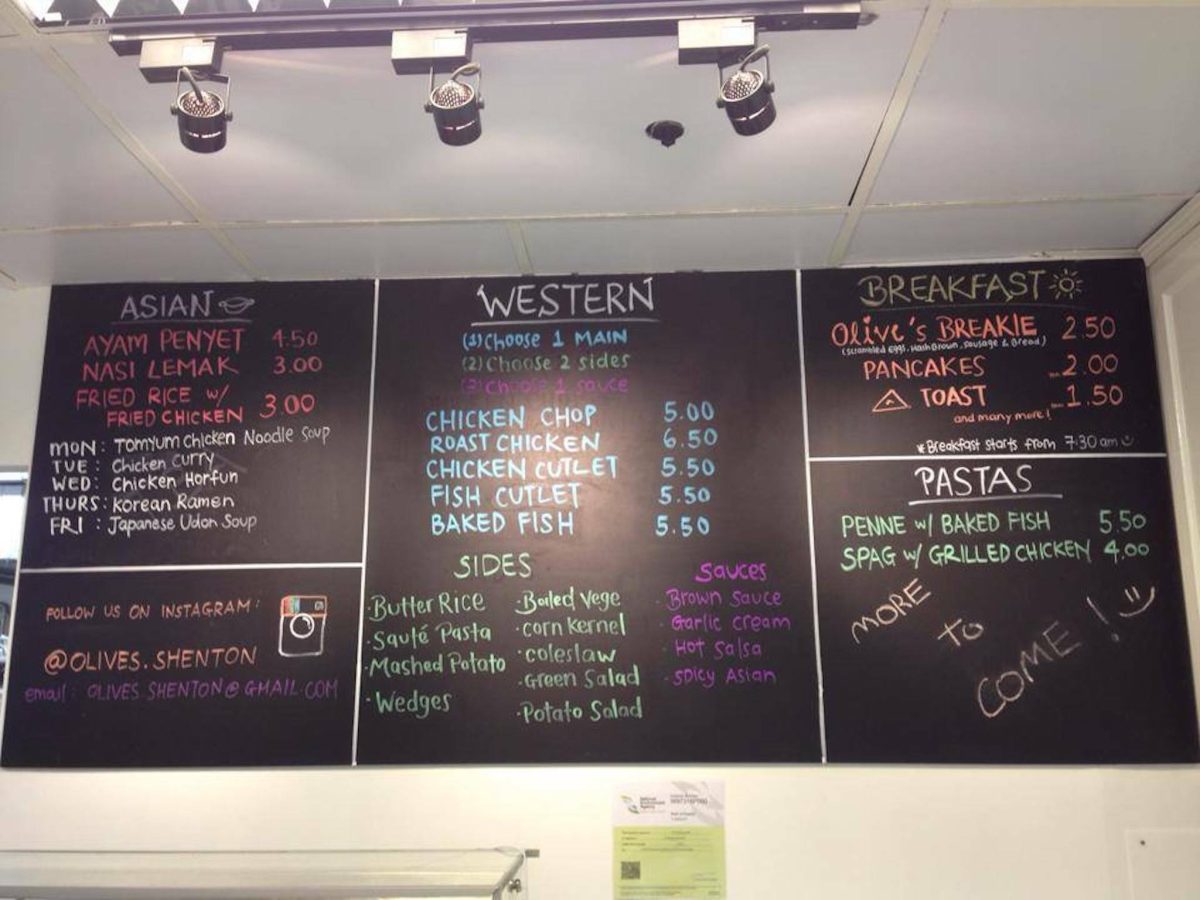 ASIAN
AYAM PENYET 4.50
NASI LEMAK 3.00
FRIED RICE w/
FRIED CHICKEN 3.00
MON: Tomyum Chicken Noodle Soup
TUE: Chicken Curry
WED: Chicken Horfun
THURS: Korean Ramen
FRI: Japanese Udon Soup
FOLLOW US ON INSTAGRAM:
@OLIVES.SHENTON
email: OLIVES.SHENTON@GMAIL.COM
WESTERN
(1) Choose 1 MAIN
(2) Choose 2 sides
(3) Choose 1 sauce
CHICKEN CHOP 5.00
ROAST CHICKEN 6.50
CHICKEN CUTLET 5.50
FISH CUTLET 5.50
BAKED FISH 5.50
SIDES
·Butter Rice
·Sauté Pasta
·Mashed Potato
·Wedges
·Boiled Vege
·corn kernel
·coleslaw
·Green Salad
·Potato Salad
Sauces
·Brown Sauce
·Garlic cream
·Hot Salsa
·Spicy Asian
BREAKFAST
Olive's BREAKIE 2.50
(Scrambled Eggs, Hash Brown, Sausage & Bread)
PANCAKES 2.00
TOAST 1.50
and many more!
*Breakfast starts from 7:30am
PASTAS
PENNE w/ BAKED FISH 5.50
SPAG w/ GRILLED CHICKEN 4.00
MORE
to
COME!
National
Environment
Agency